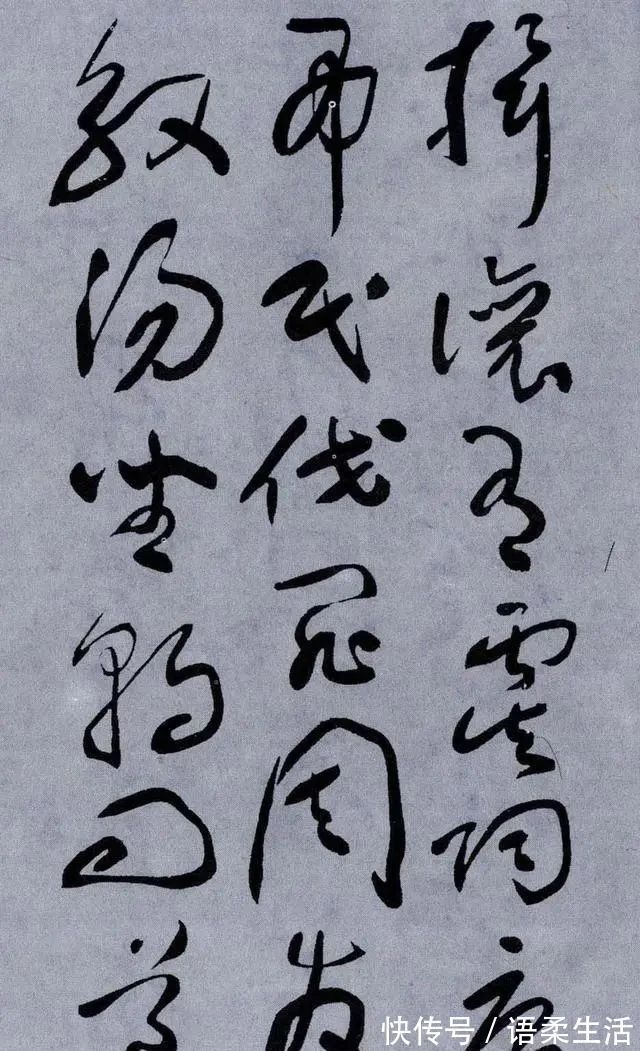 揖讓有虞陶唐
弔民伐罪周發
殷湯坐朝問道
快传号 / 语柔生活